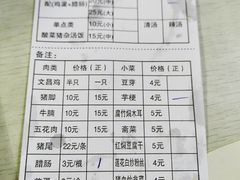 配(鸡蛋+腊肠)
20元(中)
25元(大)
单点类
10元(小)
清汤 辣汤
酸菜猪杂汤饭
15元(中)
备注:
肉类 价格(正) 小菜 价格(正)
文昌鸡 半只 一只 豆芽 4元
猪脚 10元 15元 芋梗 4元
牛腩 10元 15元 腐竹焖木耳 4元
五花肉 10元 15元 斋菜 5元
猪尾 22元/条 红焖豆腐干 5元
腊肠 3元/根 1 莲花白炒粉丝 4元